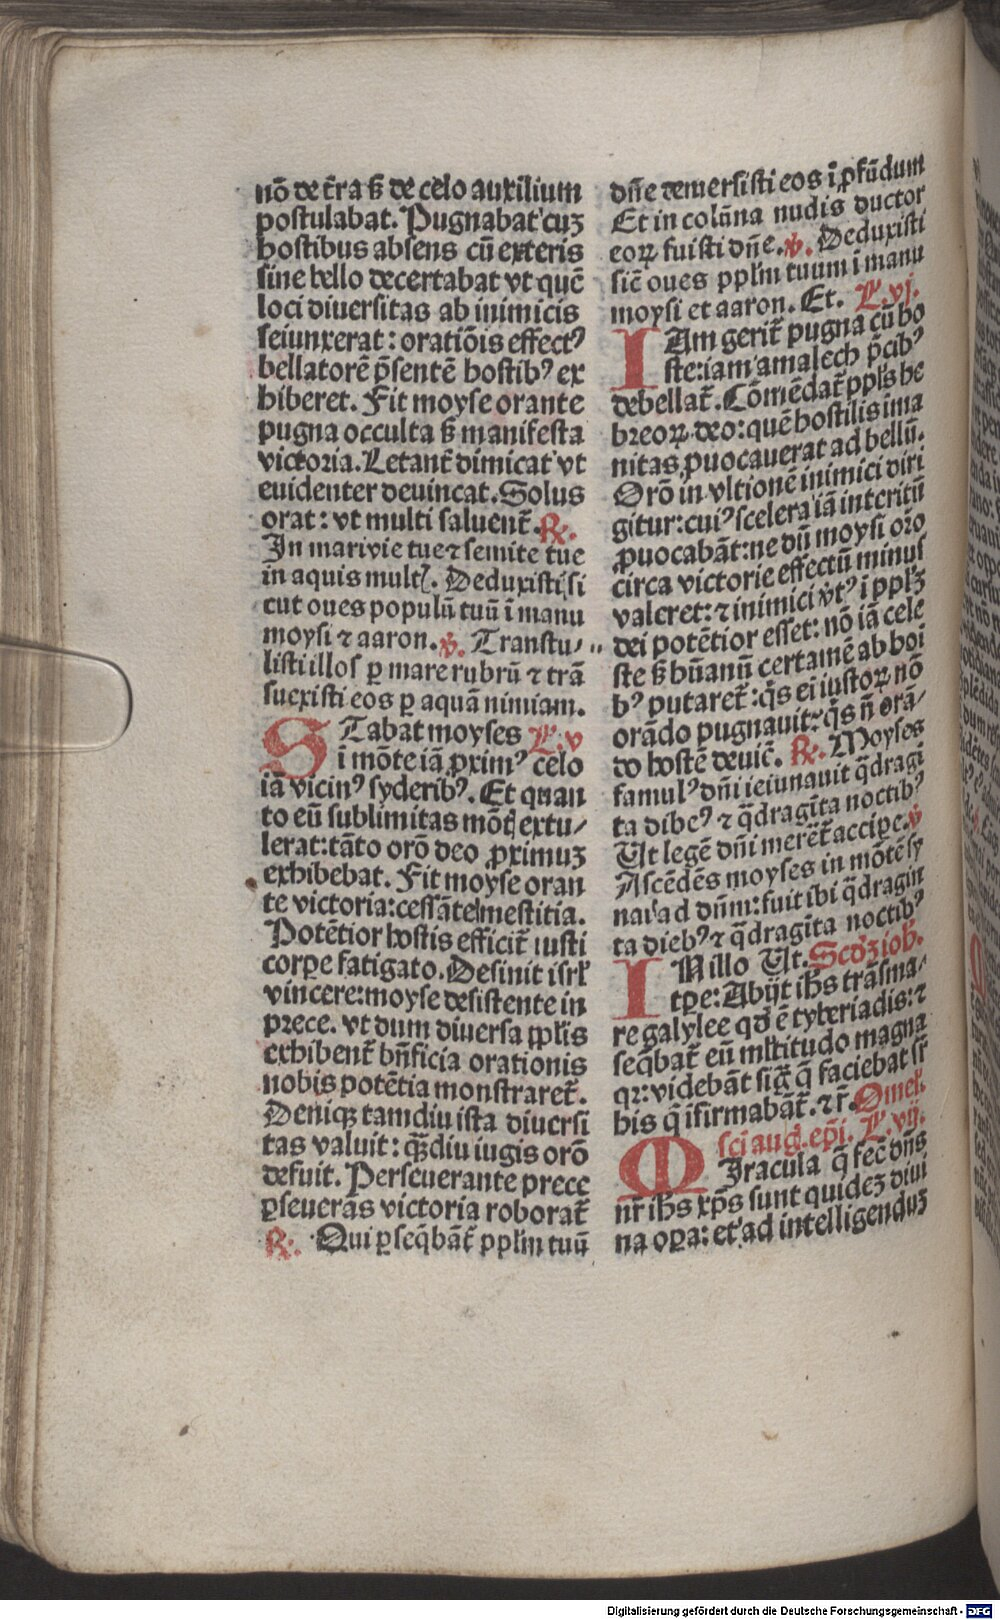 nō de t̄ra sꝫ de celo auxilium
postulabat. Pugnabat cuꝫ
hostibus absens cū exteris
sine bello decertabat vt quē
loci diuersitas ab inimicis
seiunxerat: oratiōis effectꝰ
bellatorē p̄sentē hostibꝰ ex
hiberet. Fit moyse orante
pugna occulta sꝫ manifesta
victoria. Letant̄ dimicat vt
euidenter deuincat. Solus
orat: vt multi saluent̄. ℟.
In mari vie tue ⁊ semite tue
in aquis mult̄. Deduxisti si
cut oues populū tuū ī manu
moysi ⁊ aaron. ℣. Transtu⸗
listi illos ꝑ mare rubrū ⁊ trā
suexisti eos ꝑ aquā nimiam.
STabat moyses L. v
ī mōte iā ꝓximꝰ celo
iā vicinꝰ syderibꝰ. Et quan
to eū sublimitas mōt extu⸗
lerat: tāto orō deo ꝓximuꝫ
exhibebat. Fit moyse oran
te victoria: cessāte mestitia.
Potētior hostis efficit̄ iusti
corꝑe fatigato. Desinit isrl̄
vincere: moyse desistente in
prece. vt dum diuersa ꝓplis
exhibent̄ bn̄ficia orationis
nobis potētia monstraret̄.
Deniqꝫ tamdiu ista diuersi
tas valuit: qꝫdiu iugis orō
defuit. Perseuerante prece
ꝑseuerās victoria roborat̄
℟. Qui ꝑseq̄bāt̄ pplm̄ tuū
dn̄e demersisti eos ī ꝓfūdum
Et in colūna nudis ductor
eoꝝ fuisti dn̄e. ℣. Deduxisti
sic̄ oues pplm̄ tuum ī manu
moysi et aaron. Et. L. vj.
IAm gerit̄ pugna cū ho
ste: iam amalech p̄cibꝰ
debellat̄. Cōmēdat̄ ppls he
breoꝝ deo: quē hostilis ima
nitas ꝓuocauerat ad bellū.
Orō in vltionē inimici diri
gitur: cuiꝰ scelera iā interitū
ꝓuocabāt: ne dū moysi orō
circa victorie effectū minus
valeret: ⁊ inimici v̓tꝰ ī pplꝫ
dei potētior esset: nō iā cele
ste sꝫ hūanū certamē ab hoi
bꝰ putaret̄: q̄s ei iustoꝝ nō
orādo pugnauit ⁊ q̄s n̄ orā⸗
do hostē deuic̄. ℟. Moyses
famulꝰ dn̄i ieiunauit q̄dragi
ta dibeꝰ ⁊ q̄dragīta noctibꝰ
Ut legē dn̄i merēt̄ accipe. ℣
Ascēdēs moyses in mōtē sy
nai ad dn̄m: fuit ibi q̄dragin
ta diebꝰ ⁊ q̄dragīta noctibꝰ
IN illo Ut. Scdꝫ ioh̄.
tꝑe: Abijt ih̄s trās ma⸗
re galylee qd̄ ē tyberiadis: ⁊
seq̄bat̄ eū ml̄titudo magna
qr: videbāt siḡ q̄ faciebat sr̄
his q̄ ifirmabāt̄. ⁊ r̄. Omel̄.
sci aug. ep̄i. L. vij.
MIracula q̄ fec̄ dn̄s
nr̄ ih̄s xp̄s sunt quideꝫ diui
na oꝑa: et ad intelligenduꝫ
Digitalisierung gefördert durch die Deutsche Forschungsgemeinschaft - DFG